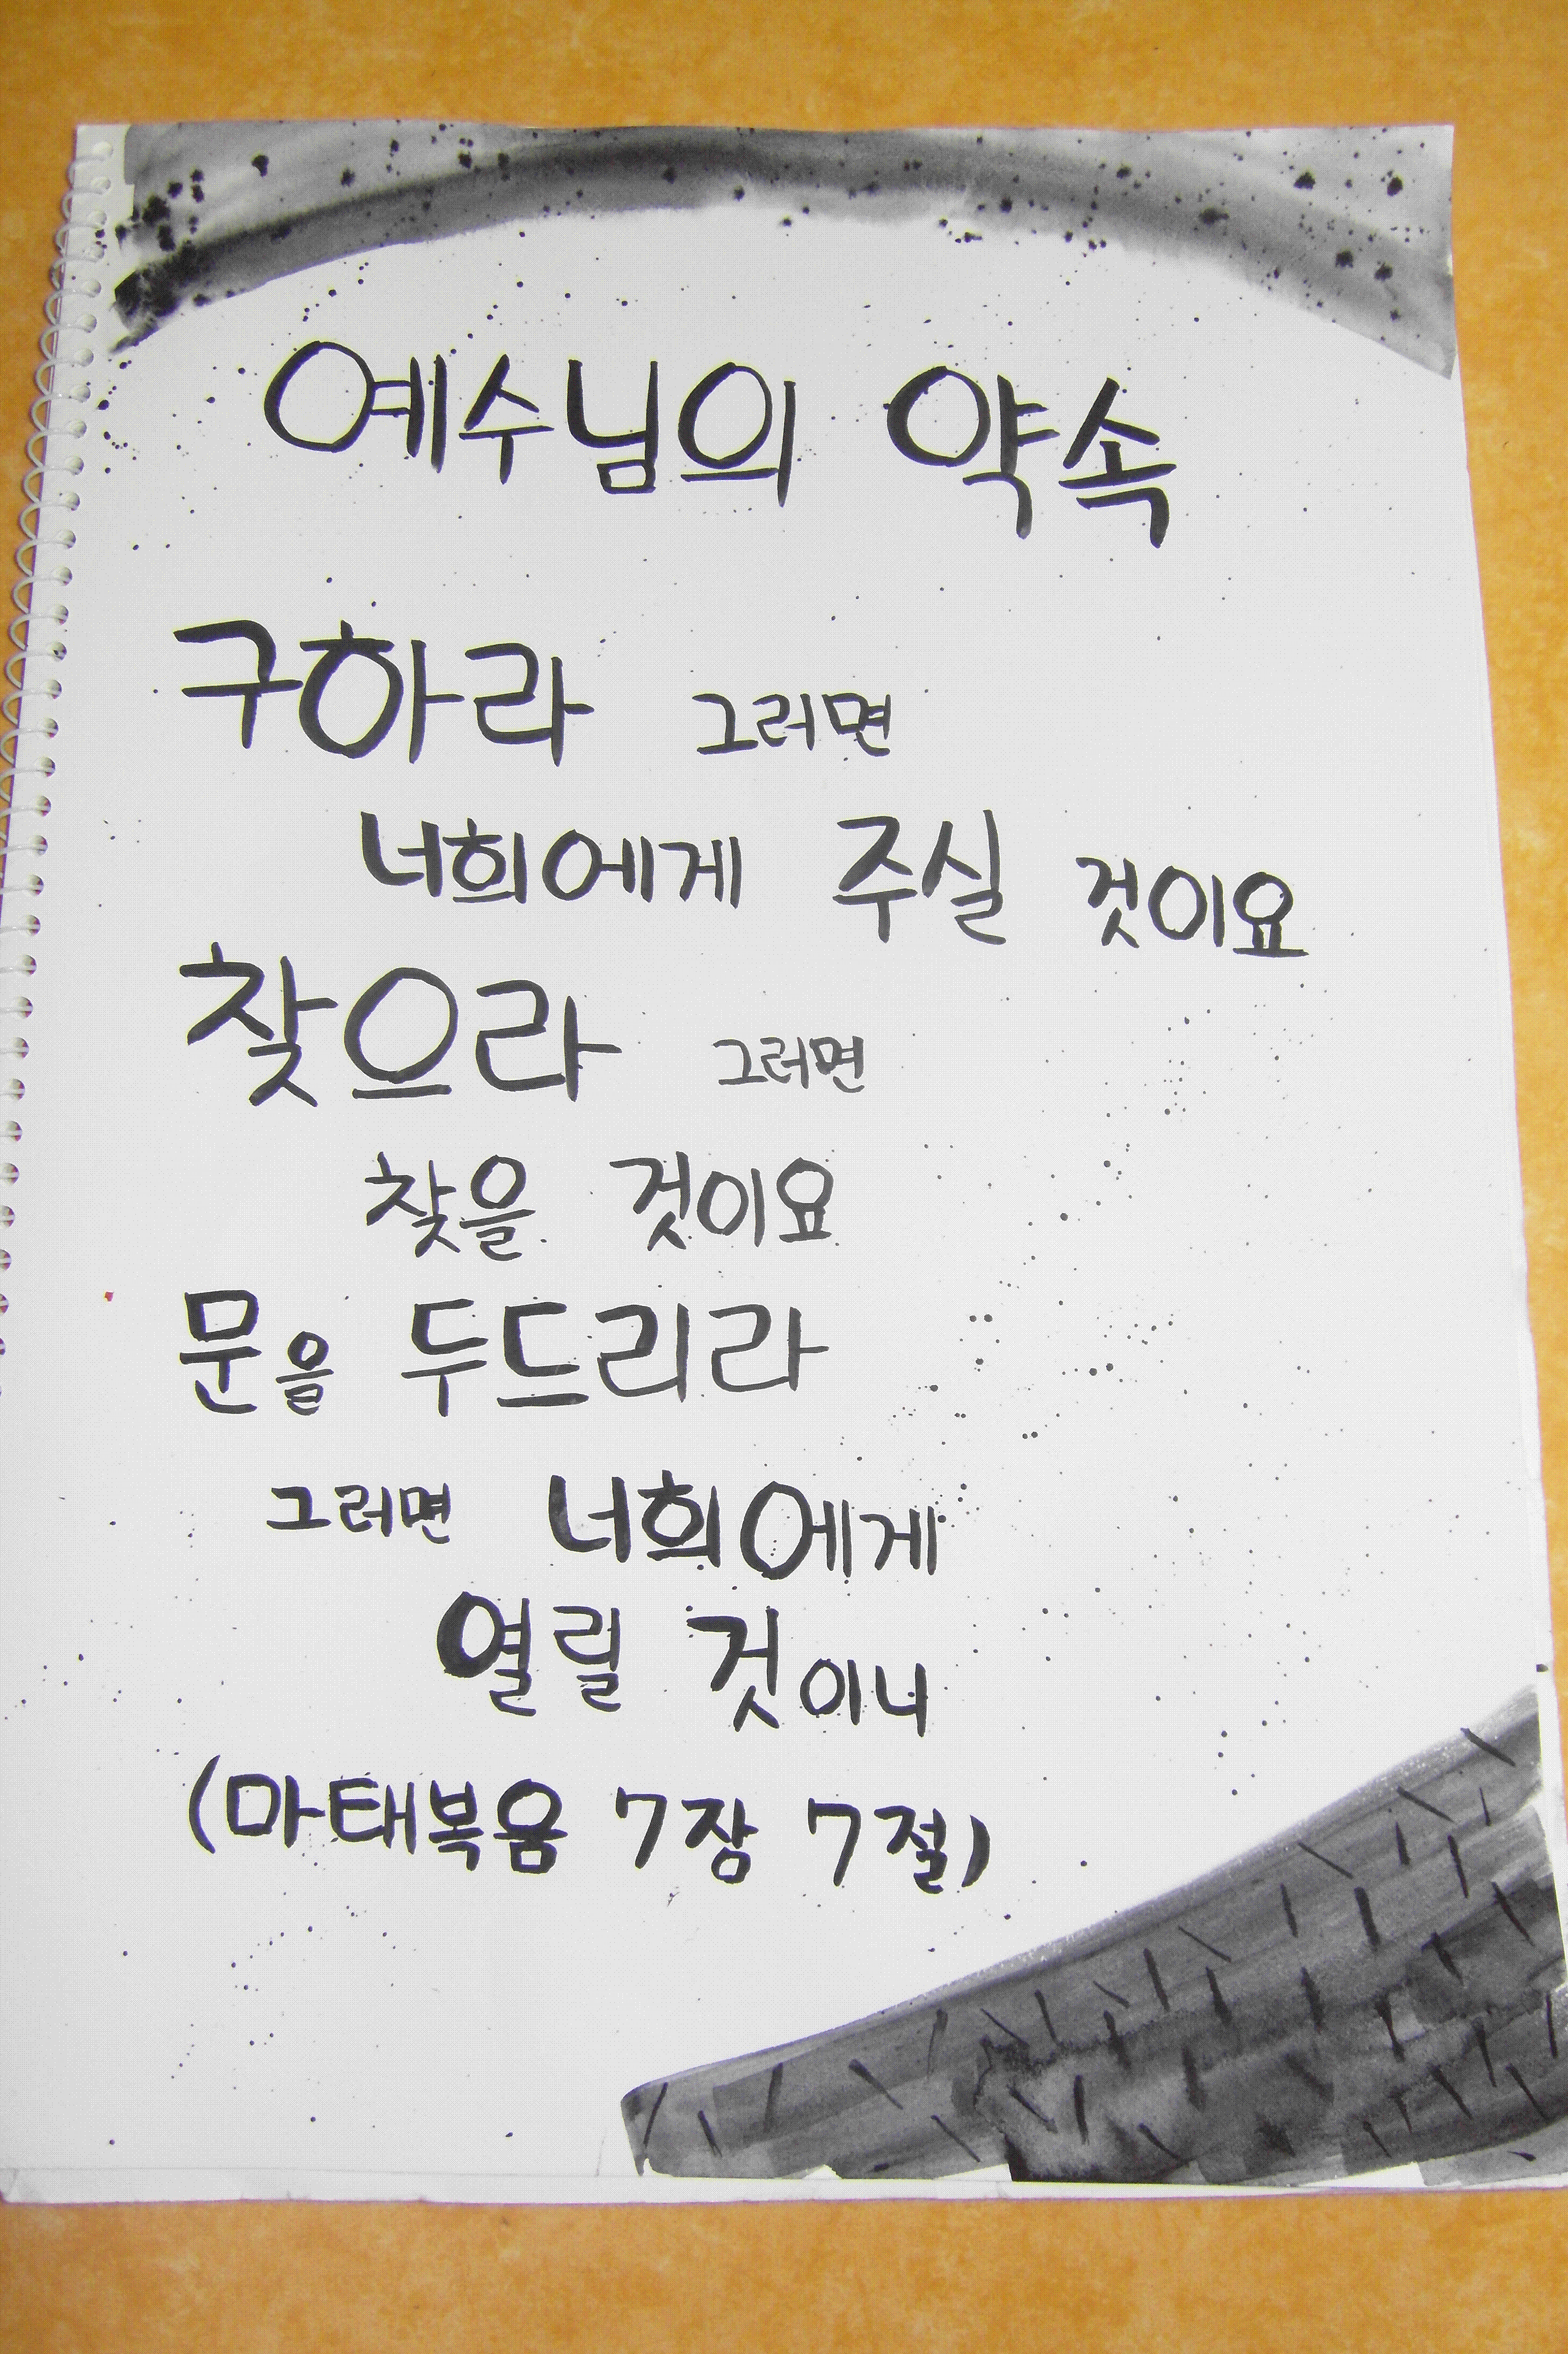 예수님의 약속
구하라 그러면
너희에게 주실 것이요
찾으라 그러면
찾을 것이요
문을 두드리라
그러면 너희에게
열릴 것이니
(마태복음 7장 7절)